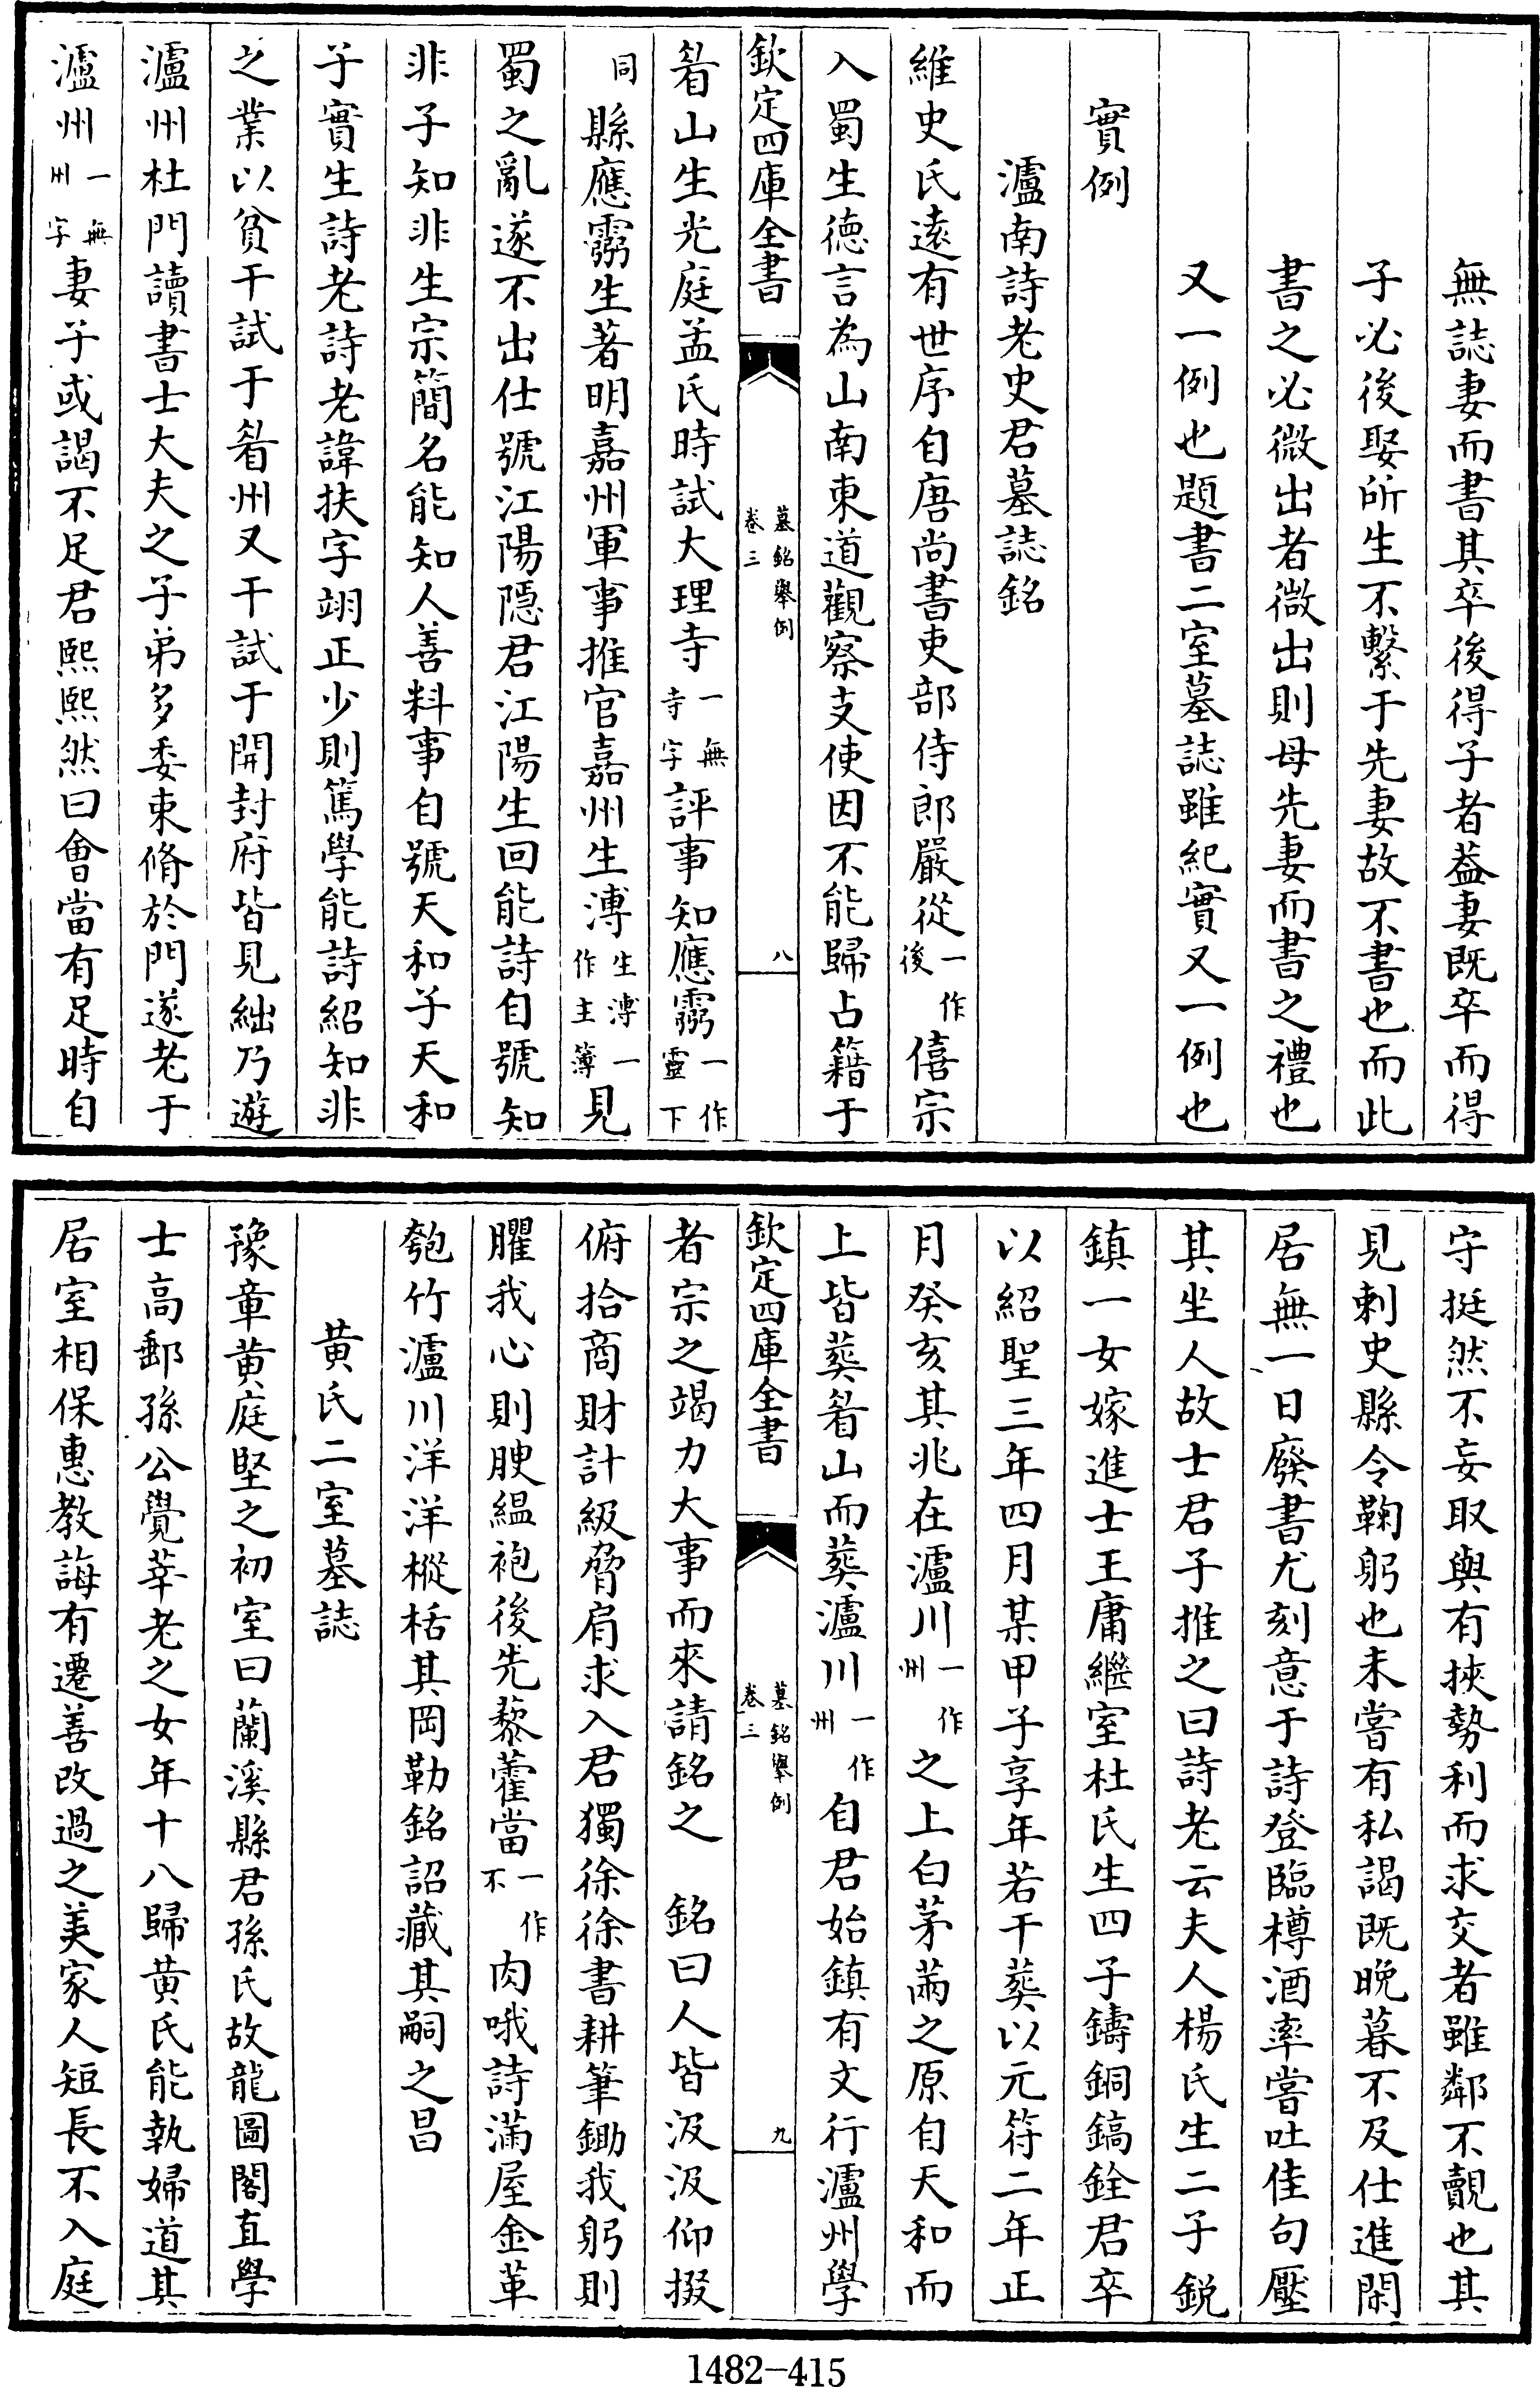 無誌妻而書其卒後得子者葢妻既卒而得
子必後娶所生不繫于先妻故不書也而此
書之必微出者微出則母先妻而書之禮也
又一例也題書二室墓誌雖紀實又一例也
實例
瀘南詩老史君墓誌銘
維史氏逺有世序自唐尚書吏部侍郎嚴從一作後僖宗
入蜀生徳言為山南東道觀察支使因不能歸占籍于
欽定四庫全書
墓銘舉例
卷三
八
眉山生光庭孟氏時試大理寺一無寺字評事知應靈一作靈下
同縣應靈生著明嘉州軍事推官嘉州生溥生溥一作主簿見
蜀之亂遂不出仕號江陽隠君江陽生回能詩自號知
非子知非生宗簡名能知人善料事自號天和子天和
子實生詩老詩老諱扶字翊正少則篤學能詩紹知非
之業以貧干試于眉州又干試于開封府皆見絀乃遊
瀘州杜門讀書士大夫之子弟多委束脩於門遂老于
瀘州一無州字妻子或謁不足君熙熙然曰會當有足時自
守挺然不妄取與有挾勢利而求交者雖鄰不覿也其
見刺史縣令鞠躬也未嘗有私謁既晚暮不及仕進閑
居無一日廢書尤刻意于詩登臨樽酒率嘗吐佳句壓
其坐人故士君子推之曰詩老云夫人楊氏生二子鋭
鎮一女嫁進士王庸繼室杜氏生四子鑄銅鎬銓君卒
以紹聖三年四月某甲子享年若干葬以元符二年正
月癸亥其兆在瀘川一作州之上白茅萳之原自天和而
上皆葬眉山而葬瀘川一作州自君始鎮有文行瀘州學
欽定四庫全書
墓銘舉例
卷三
九
者宗之竭力大事而來請銘之 銘曰人皆汲汲仰掇
俯拾商財計級脅肩求入君獨徐徐書耕筆鋤我躬則
臞我心則腴緼袍後先藜藿當一作不肉哦詩滿屋金革
匏竹瀘川洋洋樅栝其岡勒銘詔藏其嗣之昌
黄氏二室墓誌
豫章黄庭堅之初室曰蘭溪縣君孫氏故龍圖閣直學
士高郵孫公覺莘老之女年十八歸黄氏能執婦道其
居室相保惠教誨有遷善改過之美家人短長不入庭
1482-415